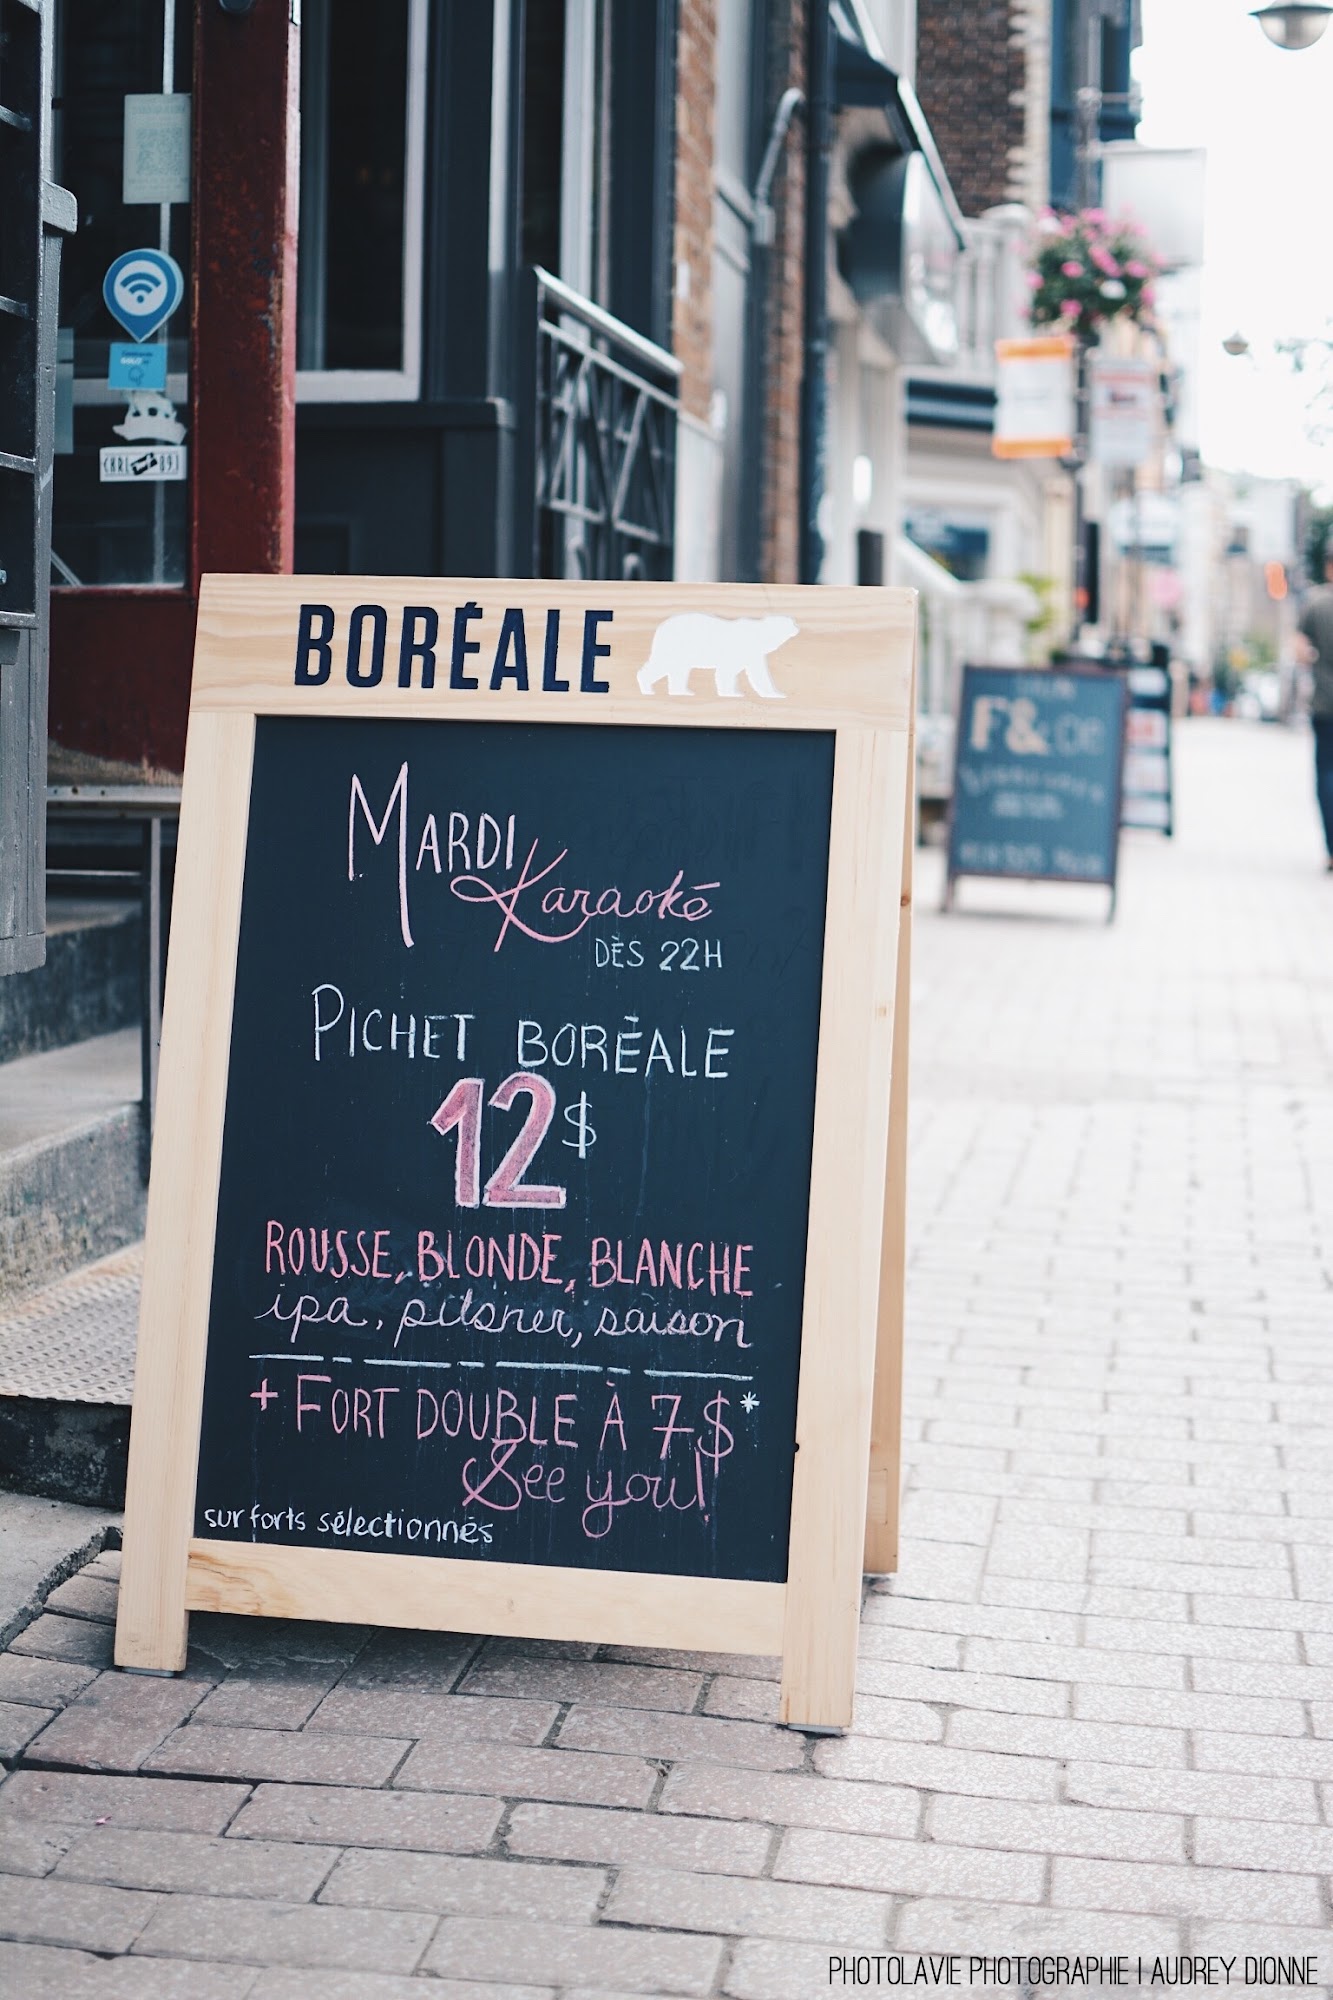 CHRL 893
BORÉALE
MARDI
Karaoké
DÈS 22H
PICHET BORÉALE
12$
ROUSSE, BLONDE, BLANCHE
ipa, pilsner, saison
+ FORT DOUBLE À 7$*
See you!
sur forts sélectionnés
F&
PHOTOLAVIE PHOTOGRAPHIE | AUDREY DIONNE